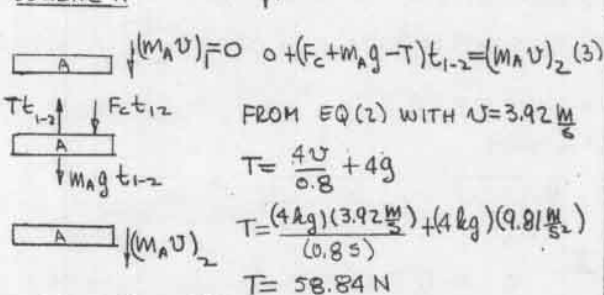 A ↓(m_A v)₁=0 0+(F_c+m_A g-T)t₁₋₂=(m_A v)₂ (3)
Tt₁₋₂ F_c t₁₂ FROM EQ(2) WITH v=3.92 m/s
A T= 4v/0.8 +4g
m_A g t₁₋₂
A (m_A v)₂ T=(4kg)(3.92 m/s)/(0.8s)+(4kg)(9.81 m/s²)
T= 58.84 N